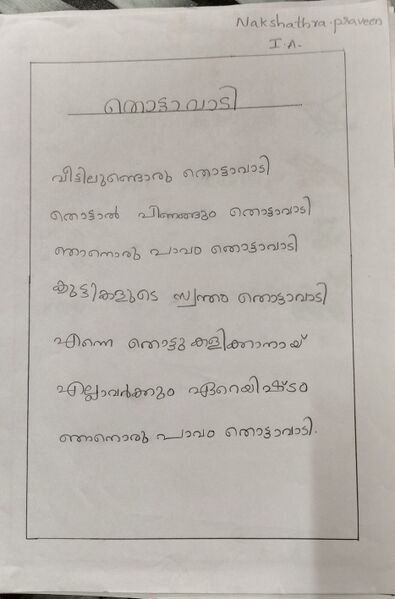 Nakshathra.praveen
I.A.
തൊട്ടാവാടി
വീട്ടിലുണ്ടൊരു തൊട്ടാവാടി
തൊട്ടാൽ പിണങ്ങും തൊട്ടാവാടി
ഞാനൊരു പാവം തൊട്ടാവാടി
കുട്ടികളുടെ സ്വന്തം തൊട്ടാവാടി
എന്നെ തൊട്ടു കളിക്കാനായ്
എല്ലാവർക്കും ഏറെയിഷ്ടം
ഞാനൊരു പാവം തൊട്ടാവാടി.